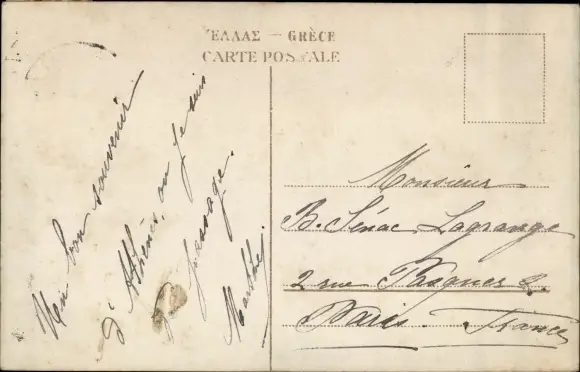 ἙΛΛΑΣ — GRÈCE
CARTE POSTALE
Un bon souvenir
d'Athènes, où je suis
de passage.
Marthe.
Monsieur
B. Sénac Lagrange
2 rue
Paris. France